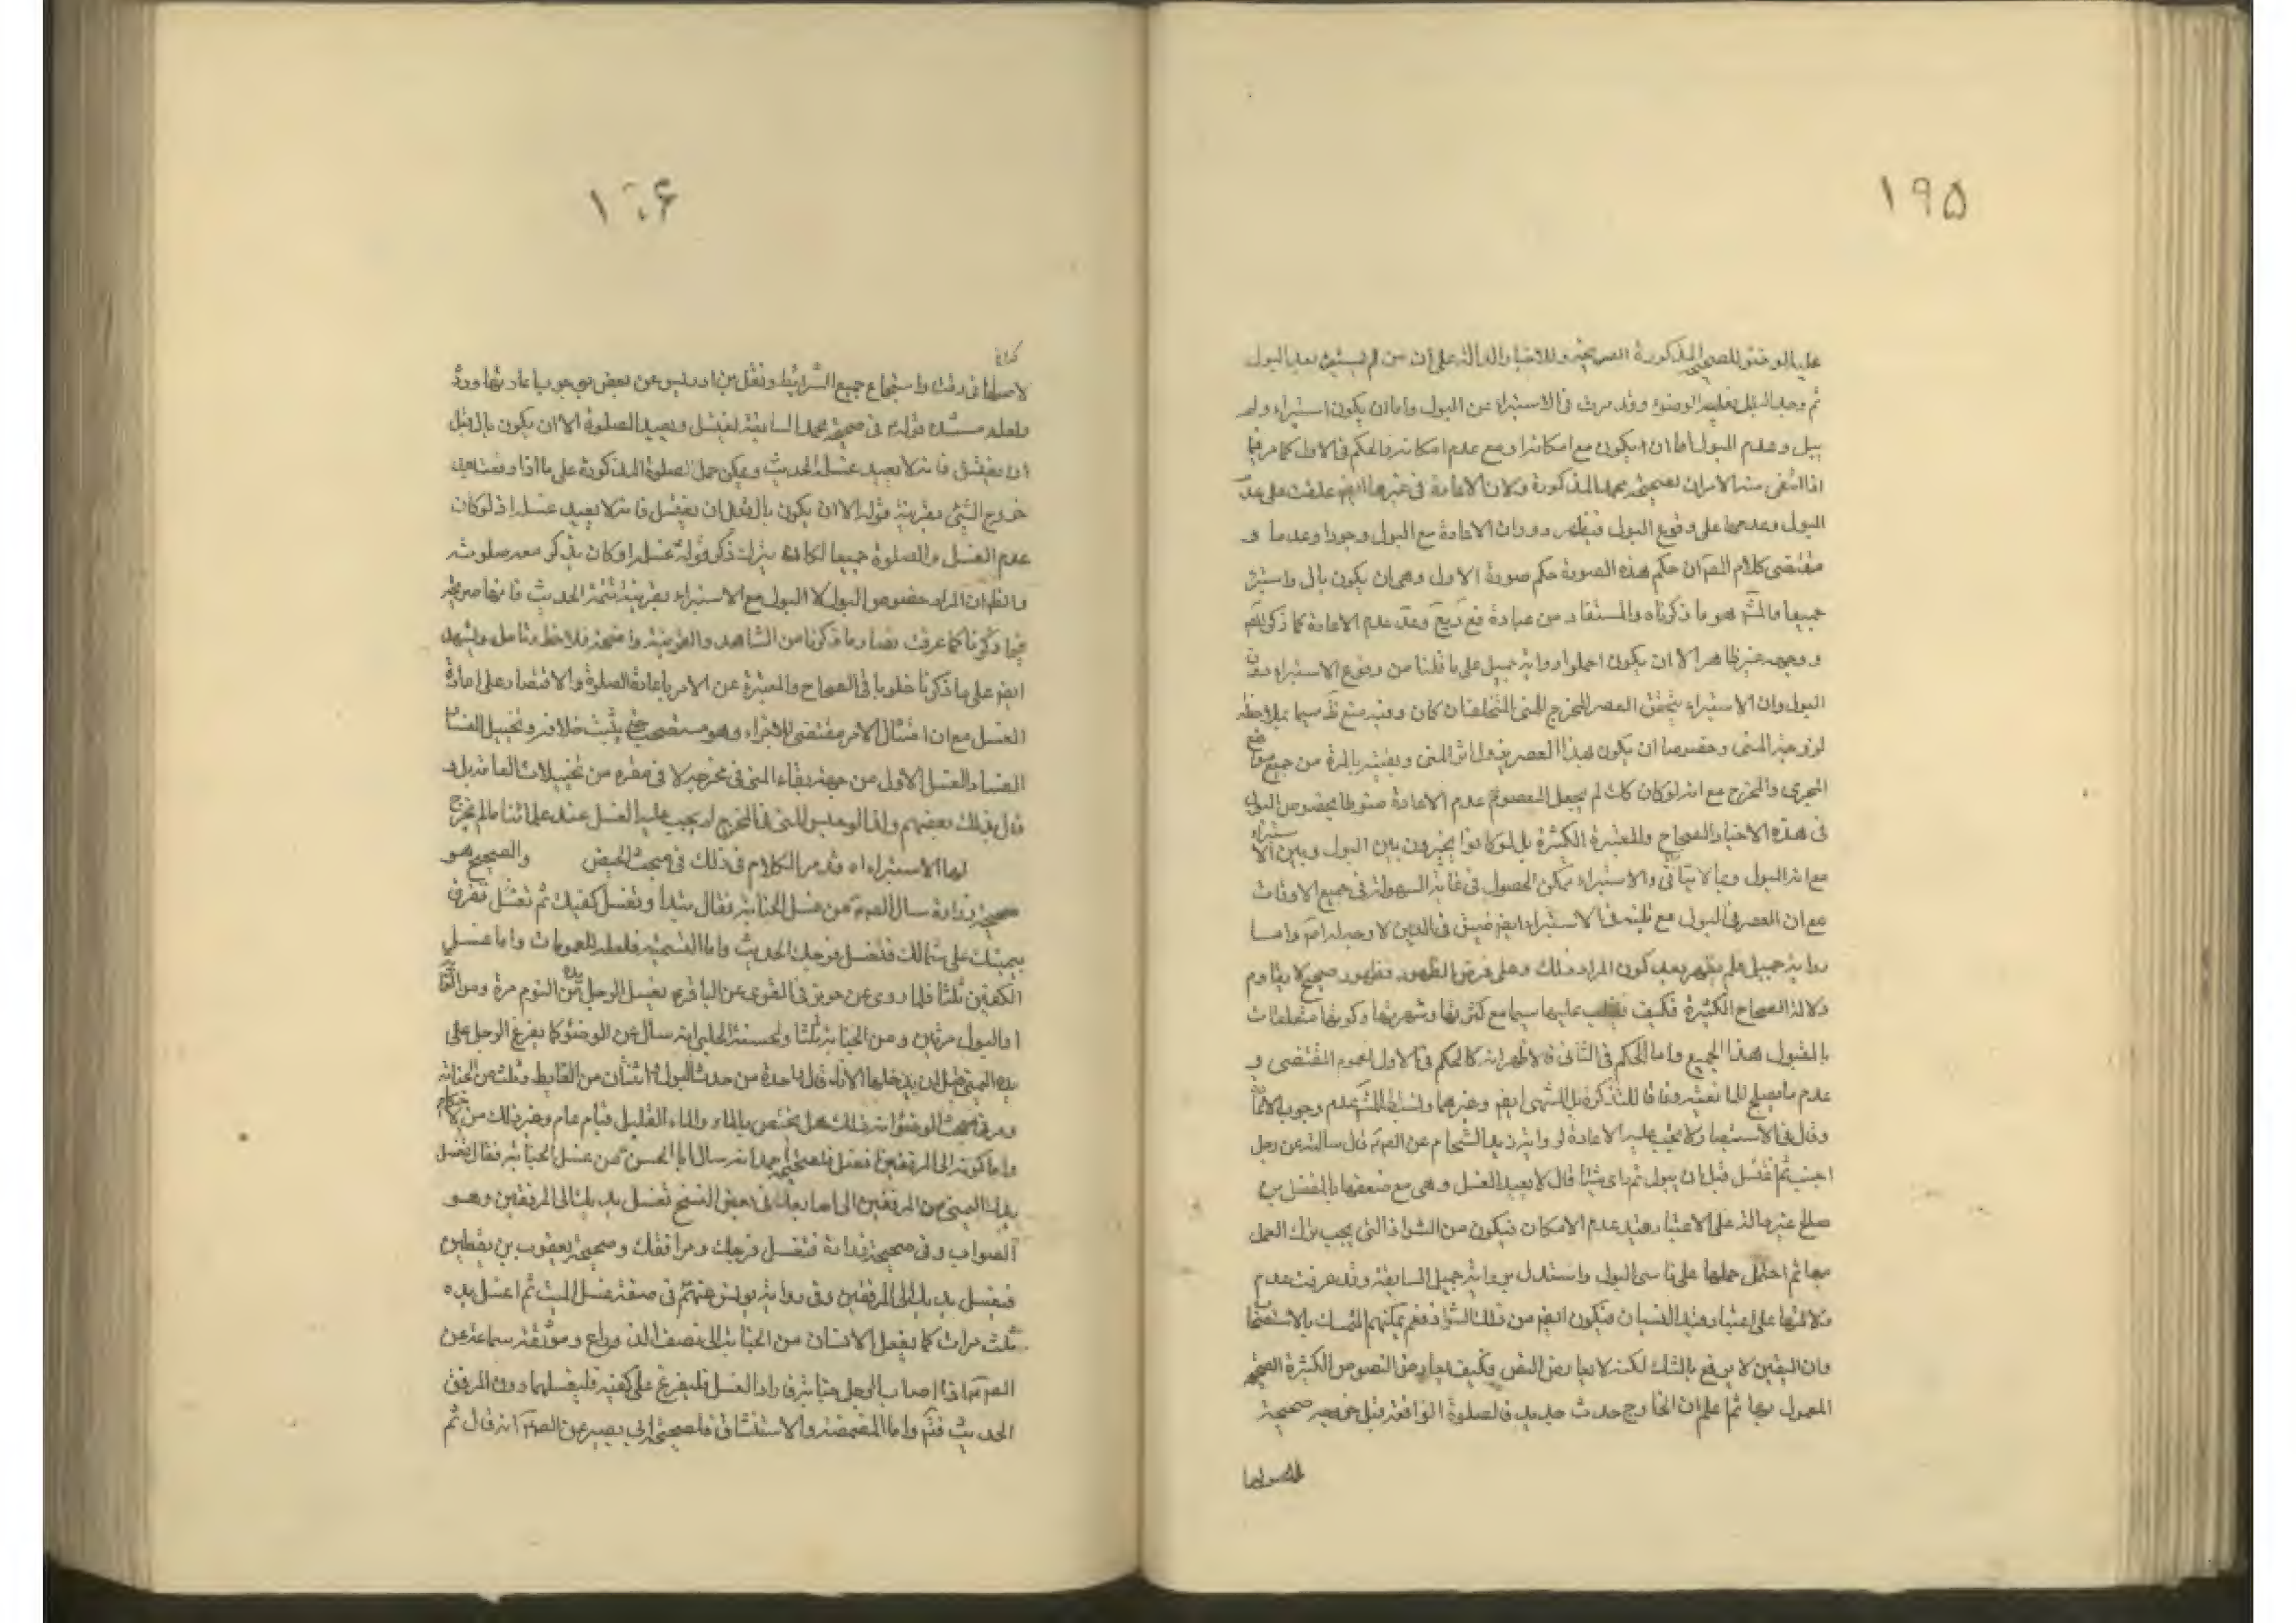 ١٩۵
عليه الوضوء للصحيح المذكورة الصريحة وللاخبار الدالة على ان من لم يستبرئ بعد البول
ثم وجد البلل فعليه الوضوء وقد مرت في الاستبراء عن البول واما ان يكون استبراء ولم
يبل وعدم البول اما ان يكون مع امكانه او مع عدم امكانه والحكم في الاول كما مر فيما
اذا انتفى منه الامران لصحيحة محمد المذكورة ولان الاعادة في غيرها ايضا علقت على عدم
البول وعدمها على وقوع البول فيظهر دوران الاعادة مع البول وجودا وعدما و
مقتضى كلام المصـ ان حكم هذه الصورة حكم صورة الاول وهي ان يكون بال واستبرئ
جميعا والمشـ هو ما ذكرناه والمستفاد من عبارة فع ويع وعد عدم الاعادة كما ذكر المصـ
ووجهه غير ظاهر الا ان يكون احملوا رواية جميل على ما قلنا من وقوع الاستبراء دون
البول وان الاستبراء يتحقق العصر المخرج للمنى المتخلف ان كان وفيه منع ظـ سيما بملاحظة
لزوجة المنى وخصوصا ان يكون بهذا العصر يزول اثر المنى وبقيته بالمرة من جميع مواضع
المجرى والمخرج مع انه لو كان كك لم يجعل المعصوم عدم الاعادة منوطا بخصوص البول
في هذه الاخبار الصحاح والمعتبرة الكثيرة بل لو كانوا يخيرون بين البول وبين الاستبراء
مع ان البول ربما لا يتاتى والاستبراء ممكن الحصول في غاية السهولة في جميع الاوقات
مع ان العصر في البول مع تليته في الاستبراء ايضا ضيق في الدين لا وجه له اصـ واما
رواية جميل فلم يظهر بعد كون المراد ذلك وعلى فرض الظهور فظهور صحيح لا يقاوم
دلالة الصحاح الكثيرة فكيف يغلب عليها سيما مع كثرتها وشهرتها وكونها متلقات
بالقبول هذا الجميع واما الحكم في الثانى فالاظهر انه كالحكم في الاول لعموم المقتضى و
عدم ما يصلح للمانعية وفاقا للتذكرة بل المنتهى ايضا وغيرهما ونسب الى المشـ عدم وجوب الاعادة
وقال في الاستبصار لا يجب عليه الاعادة لرواية زيد الشحام عن الصـ قال سالته عن رجل
اجنب ثم اغتسل قبل ان يبول ثم راى شيئا قال لا يعيد الغسل وهي مع ضعفها بالمفضل بن
صالح غير دالة على الاعتبار بقيد عدم الامكان فيكون من الشواذ التي يجب ترك العمل
بها ثم احتمل حملها على ناسي البول واستدل برواية جميل السابقة وقد عرفت عدم
دلالتها على اعتبار قيد النسيان فيكون ايضا من تلك الشواذ فغم يمكنهم التمسك بالاستصحاب
وان اليقين لا يرفع بالشك لكنه لا يعارض النص فكيف يعارض النصوص الكثيرة الصحيحة
المعمول بها ثم اعلم ان الخارج حدث جديد فالصلوة الواقعة قبل خروجه صحيحة
لحصولها
١٩۶
لاصلها في وقت واستجماع جميع الشرائط ونقل بن ادريس عن بعض بوجوب اعادتها ورد
ولعله مستنده قوله في صحيحة محمد السابقة يغتسل ويعيد الصلوة الا ان يكون بال قبل
ان يغتسل فانه لا يعيد غسله الحديث ويمكن حمل الصلوة المذكورة على ما اذا وقعت بعد
خروج الشئ بقرينة قوله الا ان يكون بال قبل ان يغتسل فانه لا يعيد غسله اذ لو كان
عدم الغسل والصلوة جميعا لكان يترك ذكر قوله غسله او كان يذكر معه صلوته
والظـ ان المراد خصوص البول لا البول مع الاستبراء بقرينة تتمة الحديث فانها صريحة
فيما ذكرنا كما عرفت نصا وما ذكرنا من الشاهد والقرينة واضحة فلاحظ وتامل ويشهد
ايضا على ما ذكرنا خلو باقى الصحاح والمعتبرة عن الامر باعادة الصلوة والاقتصار على اعادة
الغسل مع ان امتثال الامر مقتضى للاجزاء وهو مستصحب حتى يثبت خلافه وتخييل الفساد
لفساد الغسل الاول من جهة بقاء المنى في مخرجه لا في مقره من تخييلات العامة بل و
قال بذلك بعضهم ولذا لو حبس المنى في المخرج لم يجب عليه الغسل عند علمائنا ما لم يخرج
لها الاستبراء اه قد مر الكلام في ذلك في مبحث الحيض والصحيح هو
صحيحة زرارة سال الصـ عن غسل الجنابة فقال تبدأ وتغسل كفيك ثم تغسل تفرغ
بيمينك على شمالك فتغسل فرجك الحديث واما التسمية فلعله للعمومات واما غسل
الكفين ثلثا فلما روى عن حريز في القوى عن الباقر يغسل الرجل يده من النوم مرة ومن الغائط
والبول مرتين ومن الجنابة ثلثا ولحسنة الحلبى انه سال عن الوضوء كما يفرغ الرجل على
يده اليمنى قبل ان يدخلها الاناء قال واحدة من حدث البول واثنان من الغايط وثلث من الجنابة
ومر في مبحث الوضوء ان ذلك هل يختص بالماء والماء القليل فيام عام وغير ذلك من الاحكام
واما كونه الى المرفقين افضل فلصحيحة احمد انه سال ابا الحسن عن غسل الجنابة فقال تغسل
يدك اليمنى من المرفقين الى اصابعك في بعض النسخ تغسل يديك الى المرفقين وهو
الصواب وفى صحيحة زرارة فتغسل فرجك ومرافقك وصحيحة يعقوب بن يقطين
فيغسل يديه الى المرفقين وفى رواية يونس عنهم في صفة غسل الميت ثم اغسل يده
ثلث مرات كما يغسل الانسان من الجنابة الى نصف الذراع وموثقة سماعة عن
الصـ اذا اصاب الرجل جنابة فاراد الغسل فليفرغ على كفيه فليغسلهما دون المرفق
الحديث فتم واما المضمضة والاستنشاق فلصحيحة ابي بصير عن الصـ انه قال ثم